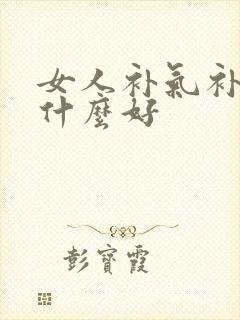 女人补氣补
什麼好
彭寶霞